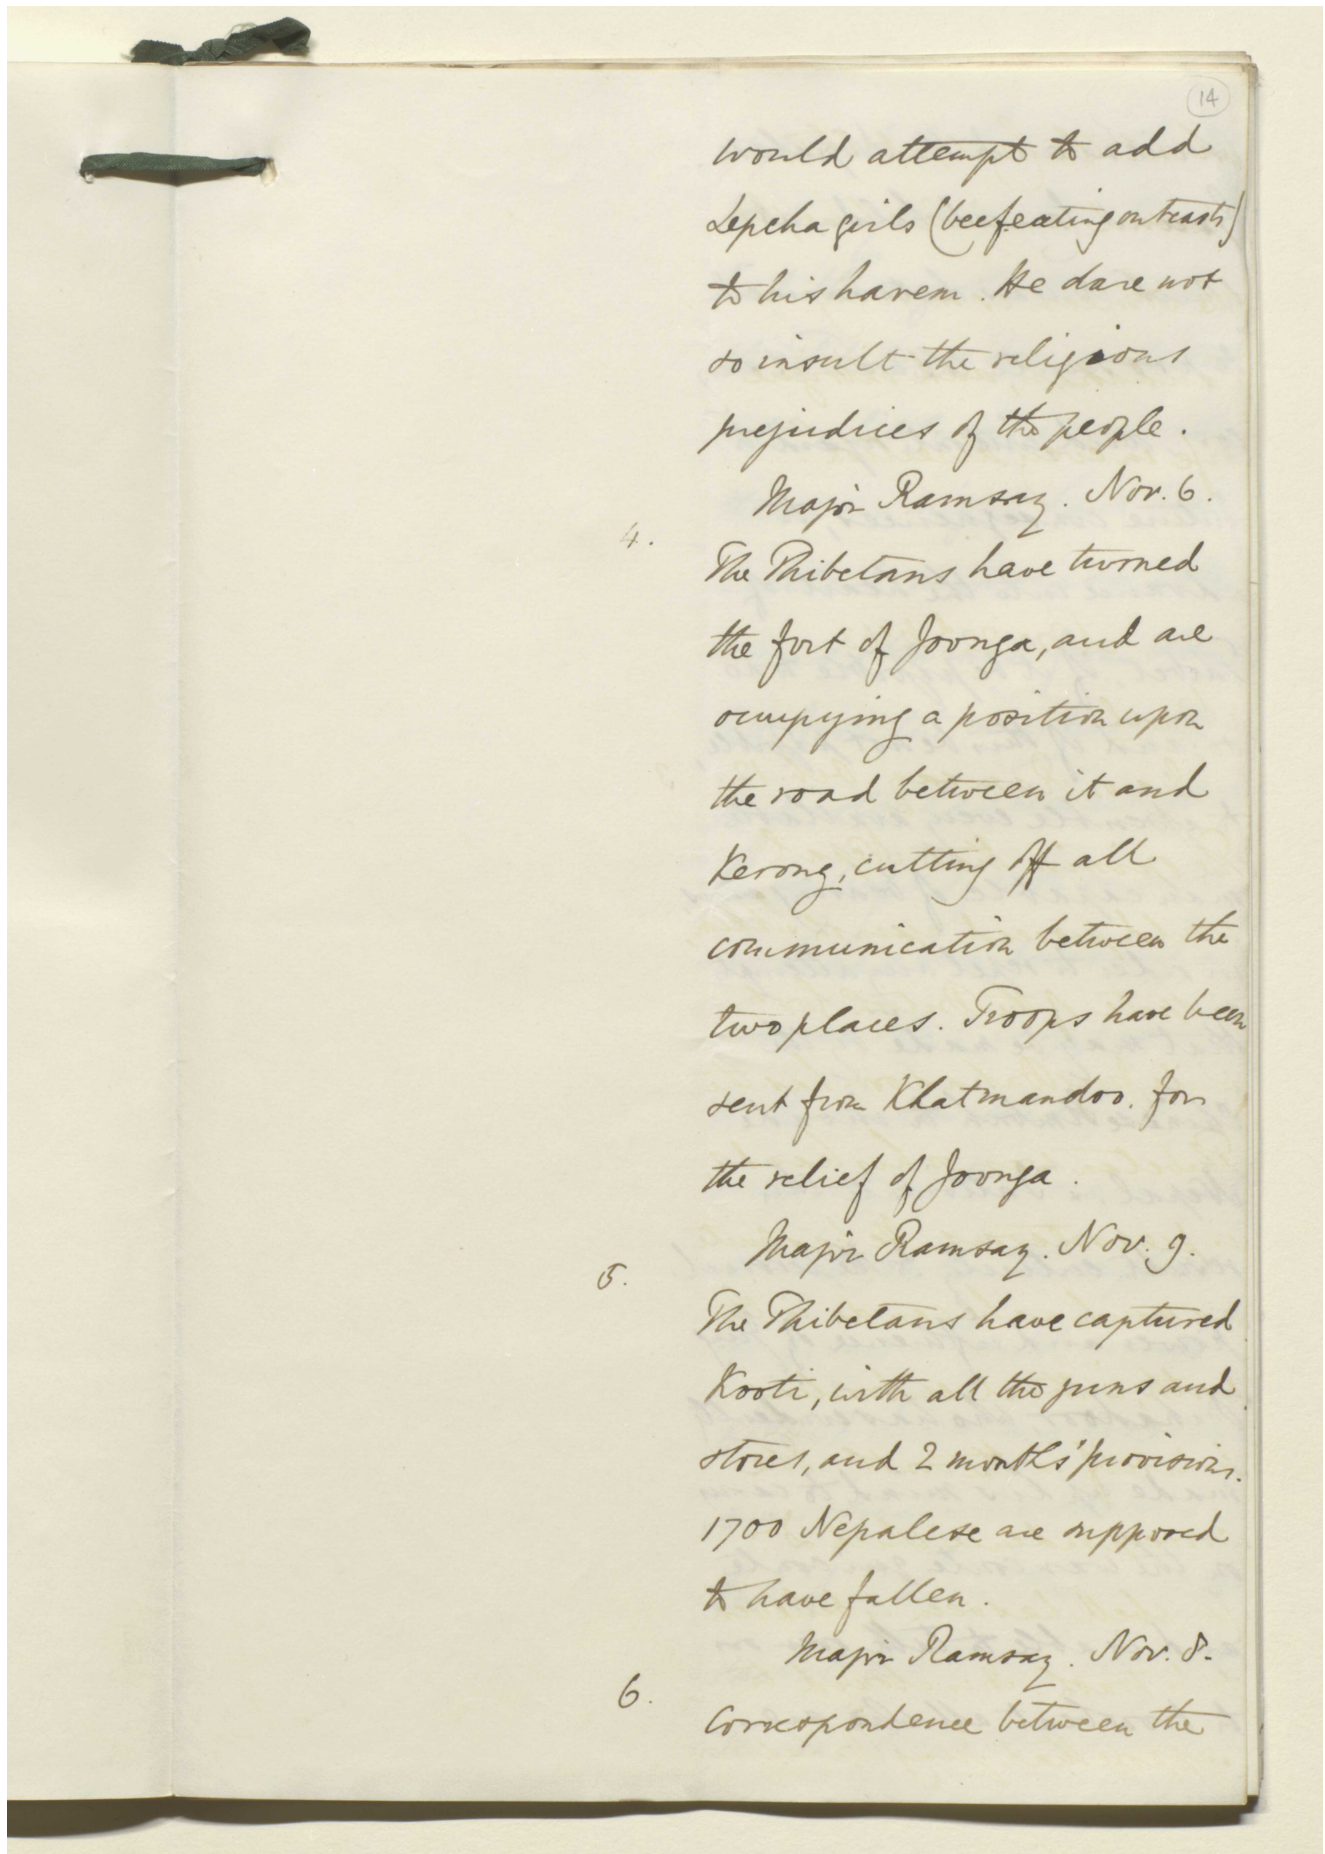 14
would attempt to add
Lepcha girls (beefeating outcasts)
to his harem. He dare not
so insult the religious
prejudices of the people.
Major Ramsay. Nov. 6.
4.
The Thibetans have turned
the fort of Joonga, and are
occupying a position upon
the road between it and
Kerong, cutting off all
communication between the
two places. Troops have been
sent from Khatmandoo. for
the relief of Joonga.
Major Ramsay. Nov. 9.
5.
The Thibetans have captured
Kooti, with all the guns and
stores, and 2 months' provisions.
1700 Nepalese are supposed
to have fallen.
Major Ramsay. Nov. 8.
6.
Correspondence between the